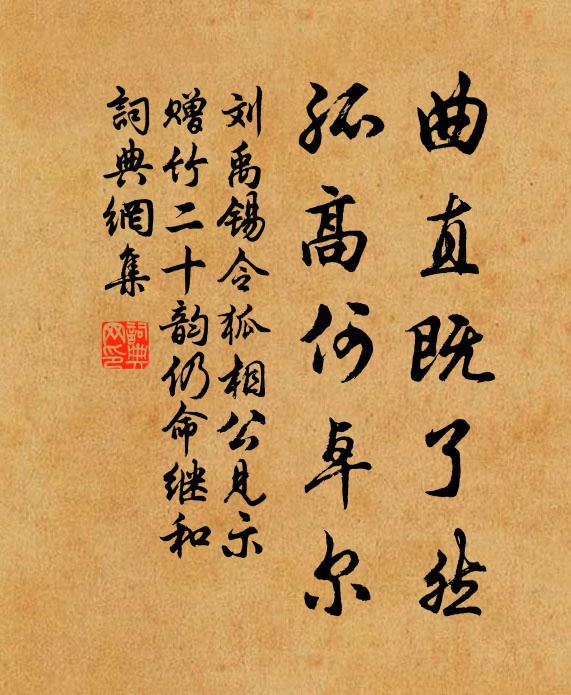 曲直既了然
孤高何卓尔
刘禹锡令狐相公见示
赠竹二十韵仍命继和
詞典網集
詞典
网印